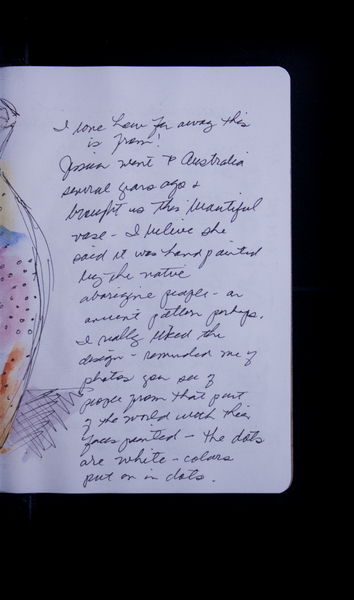 I love how far away this
is from!
Jessica went to Australia
several years ago &
brought us this beautiful
vase - I believe she
said it was hand painted
by the native
aborigine people - an
ancient pattern perhaps.
I really liked the
design - reminded me of
photos you see of
people from that part
of the world with their
faces painted - the dots
are white - colors
put on in dots.